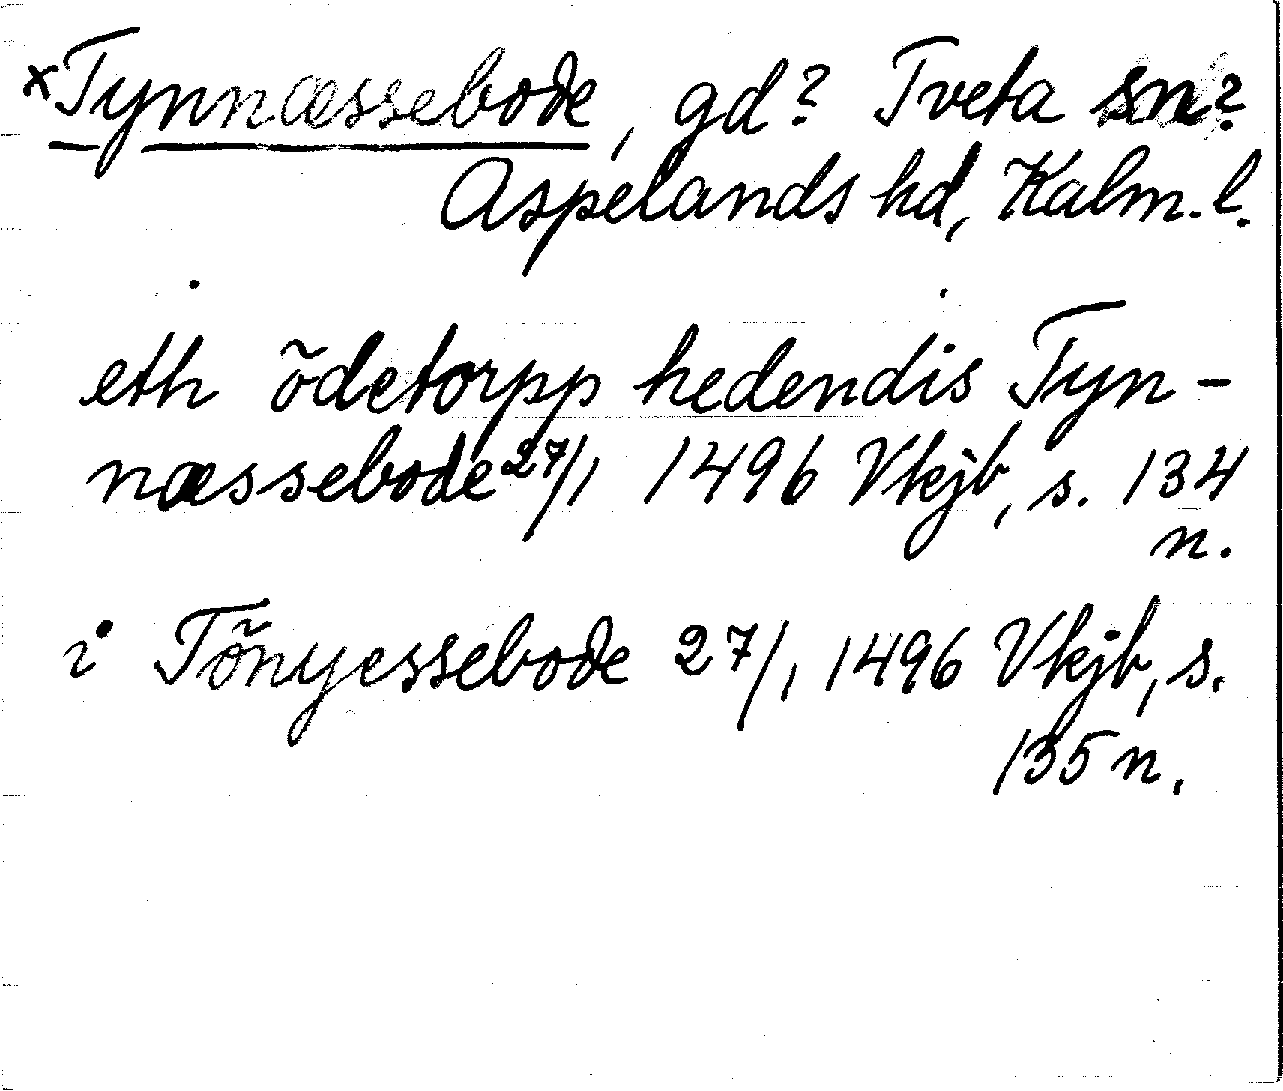 ×Tynnæssebode, gd? Tveta sn?
Aspelands hd, Kalm. l.
eth õdetorpp hedendis Tyn-
næssebode 27/1 1496 Vkjb, s. 134
n.
i Tõnyessebode 27/1 1496 Vkjb, s.
135 n.